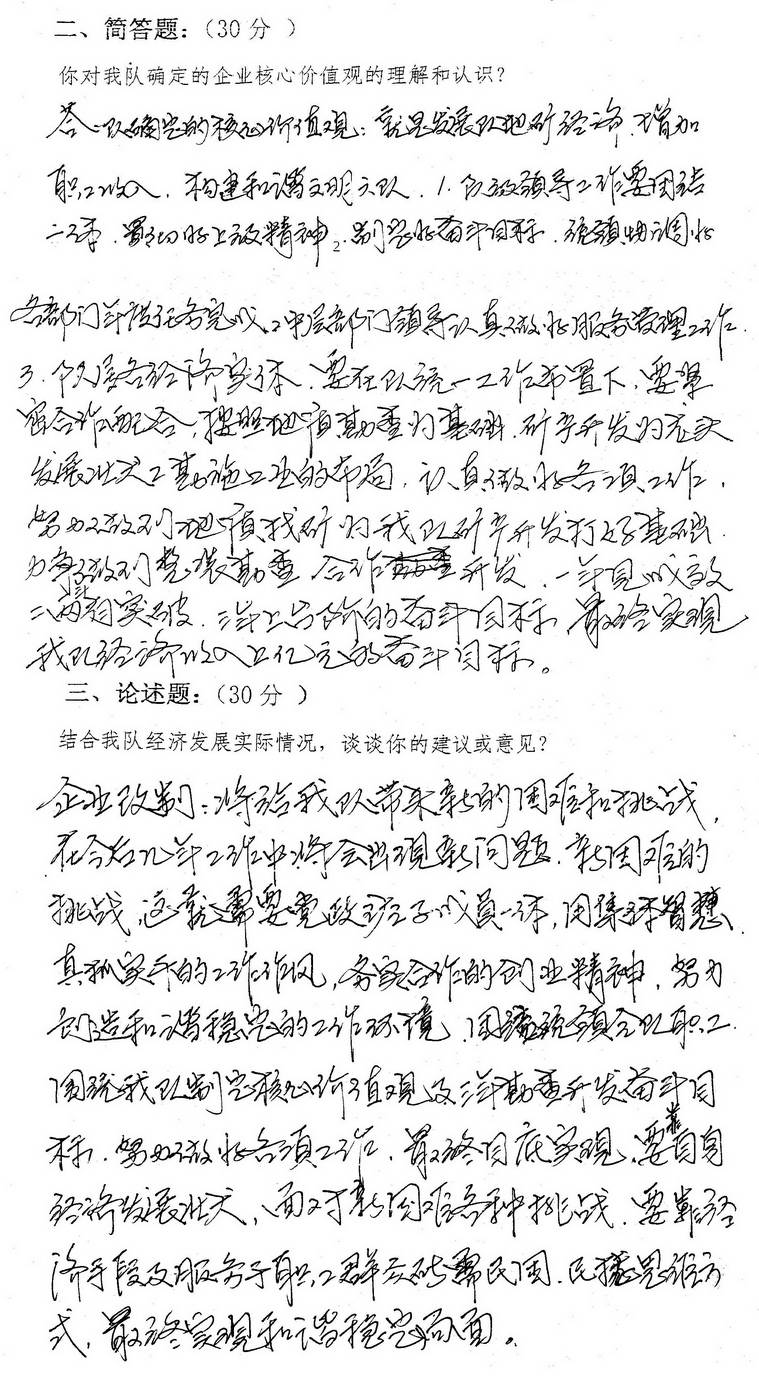 二、简答题：（30分 ）
你对我队确定的企业核心价值观的理解和认识？
答：队确定的核心价值观：就是发展队地矿经济、增加
职工收入，构建和谐文明大队．1. 队级领导工作要团结
一体．贯彻好上级精神，制定好奋斗目标．统领协调好
各部门年度任务完成．2. 中层部门领导认真做好服务管理工作．
3. 队属各经济实体．要在队统一工作布置下，要紧
密合作配合，按照地质勘查为基础．矿产开发为龙头
发展壮大工勘施工业的布局．认真做好各项工作，
努力做到地质找矿为我队矿产开发打好基础．
力争做到整装勘查 合作开发．一年见成效
二年有突破．三年上台阶的奋斗目标 最终实现
我队经济收入上亿元的奋斗目标。
三、论述题：（30分 ）
结合我队经济发展实际情况，谈谈你的建议或意见？
企业改制：将给我队带来新的困难和挑战，
在今后几年工作中将会出现新问题．新困难的
挑战，这就需要党政班子成员一体，用集体智慧．
真抓实干的工作作风，务实合作的创业精神，努力
创造和谐稳定的工作环境．团结统领全队职工．
围绕我队制定核心价值观及三年勘查开发奋斗目
标．努力做好各项工作．最终目底实现．要靠自身
经济发展壮大，面对新困难各种挑战．要靠经
济手段及服务于职工群众破解民困．民忧思维方
式，最终实现和谐稳定局面。